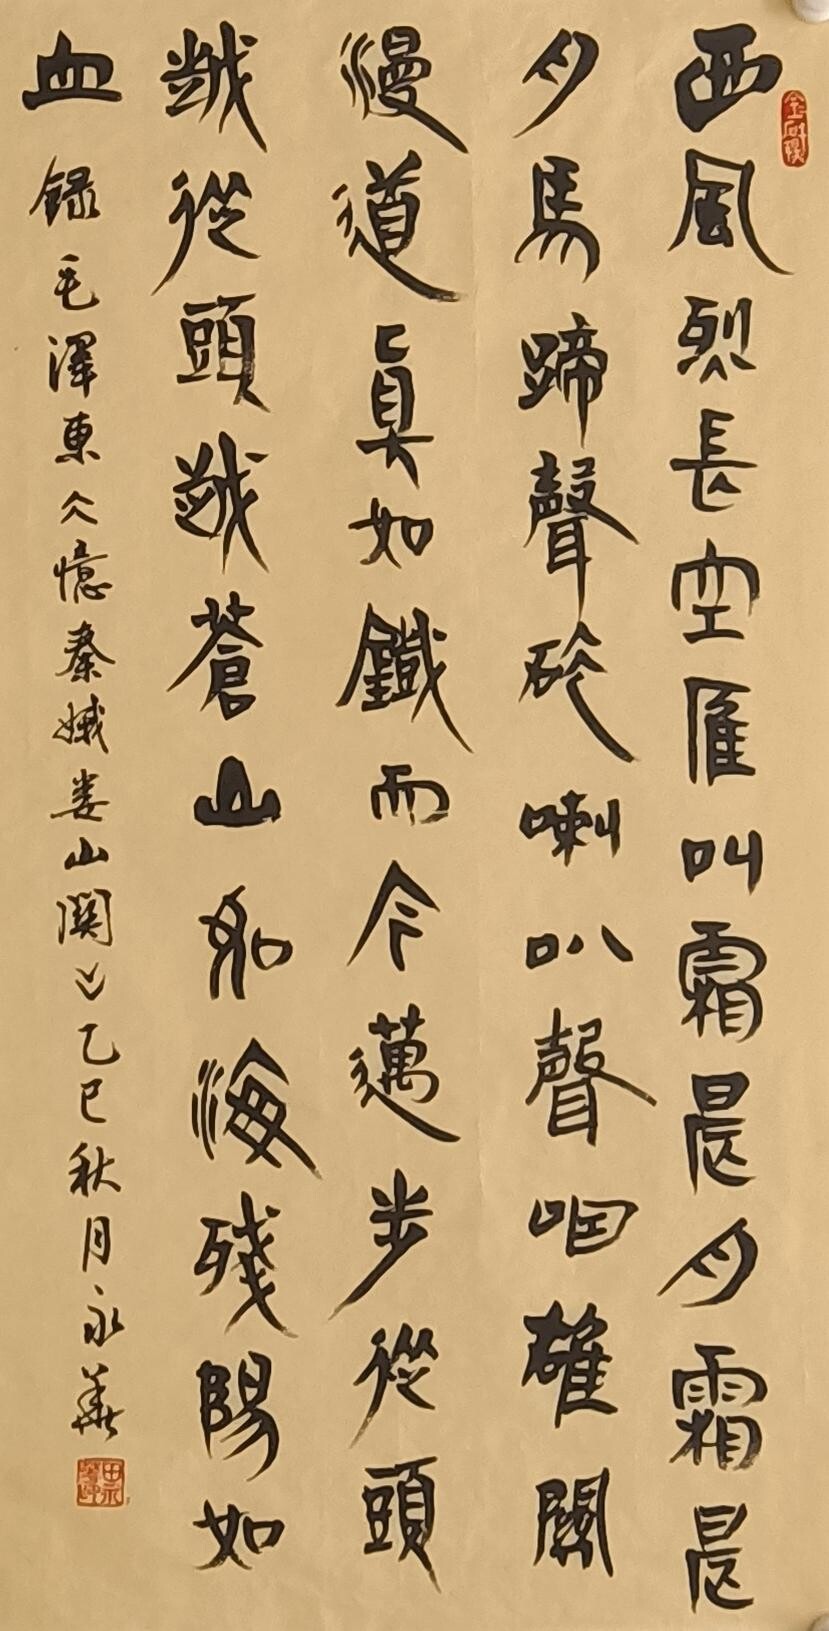 西風烈長空雁叫霜晨月霜晨
月馬蹄聲碎喇叭聲咽雄關
漫道眞如鐵而今邁步從頭
越從頭越蒼山如海殘陽如
血 録毛澤東《憶秦娥娄山關》乙巳秋月永華
田永華印